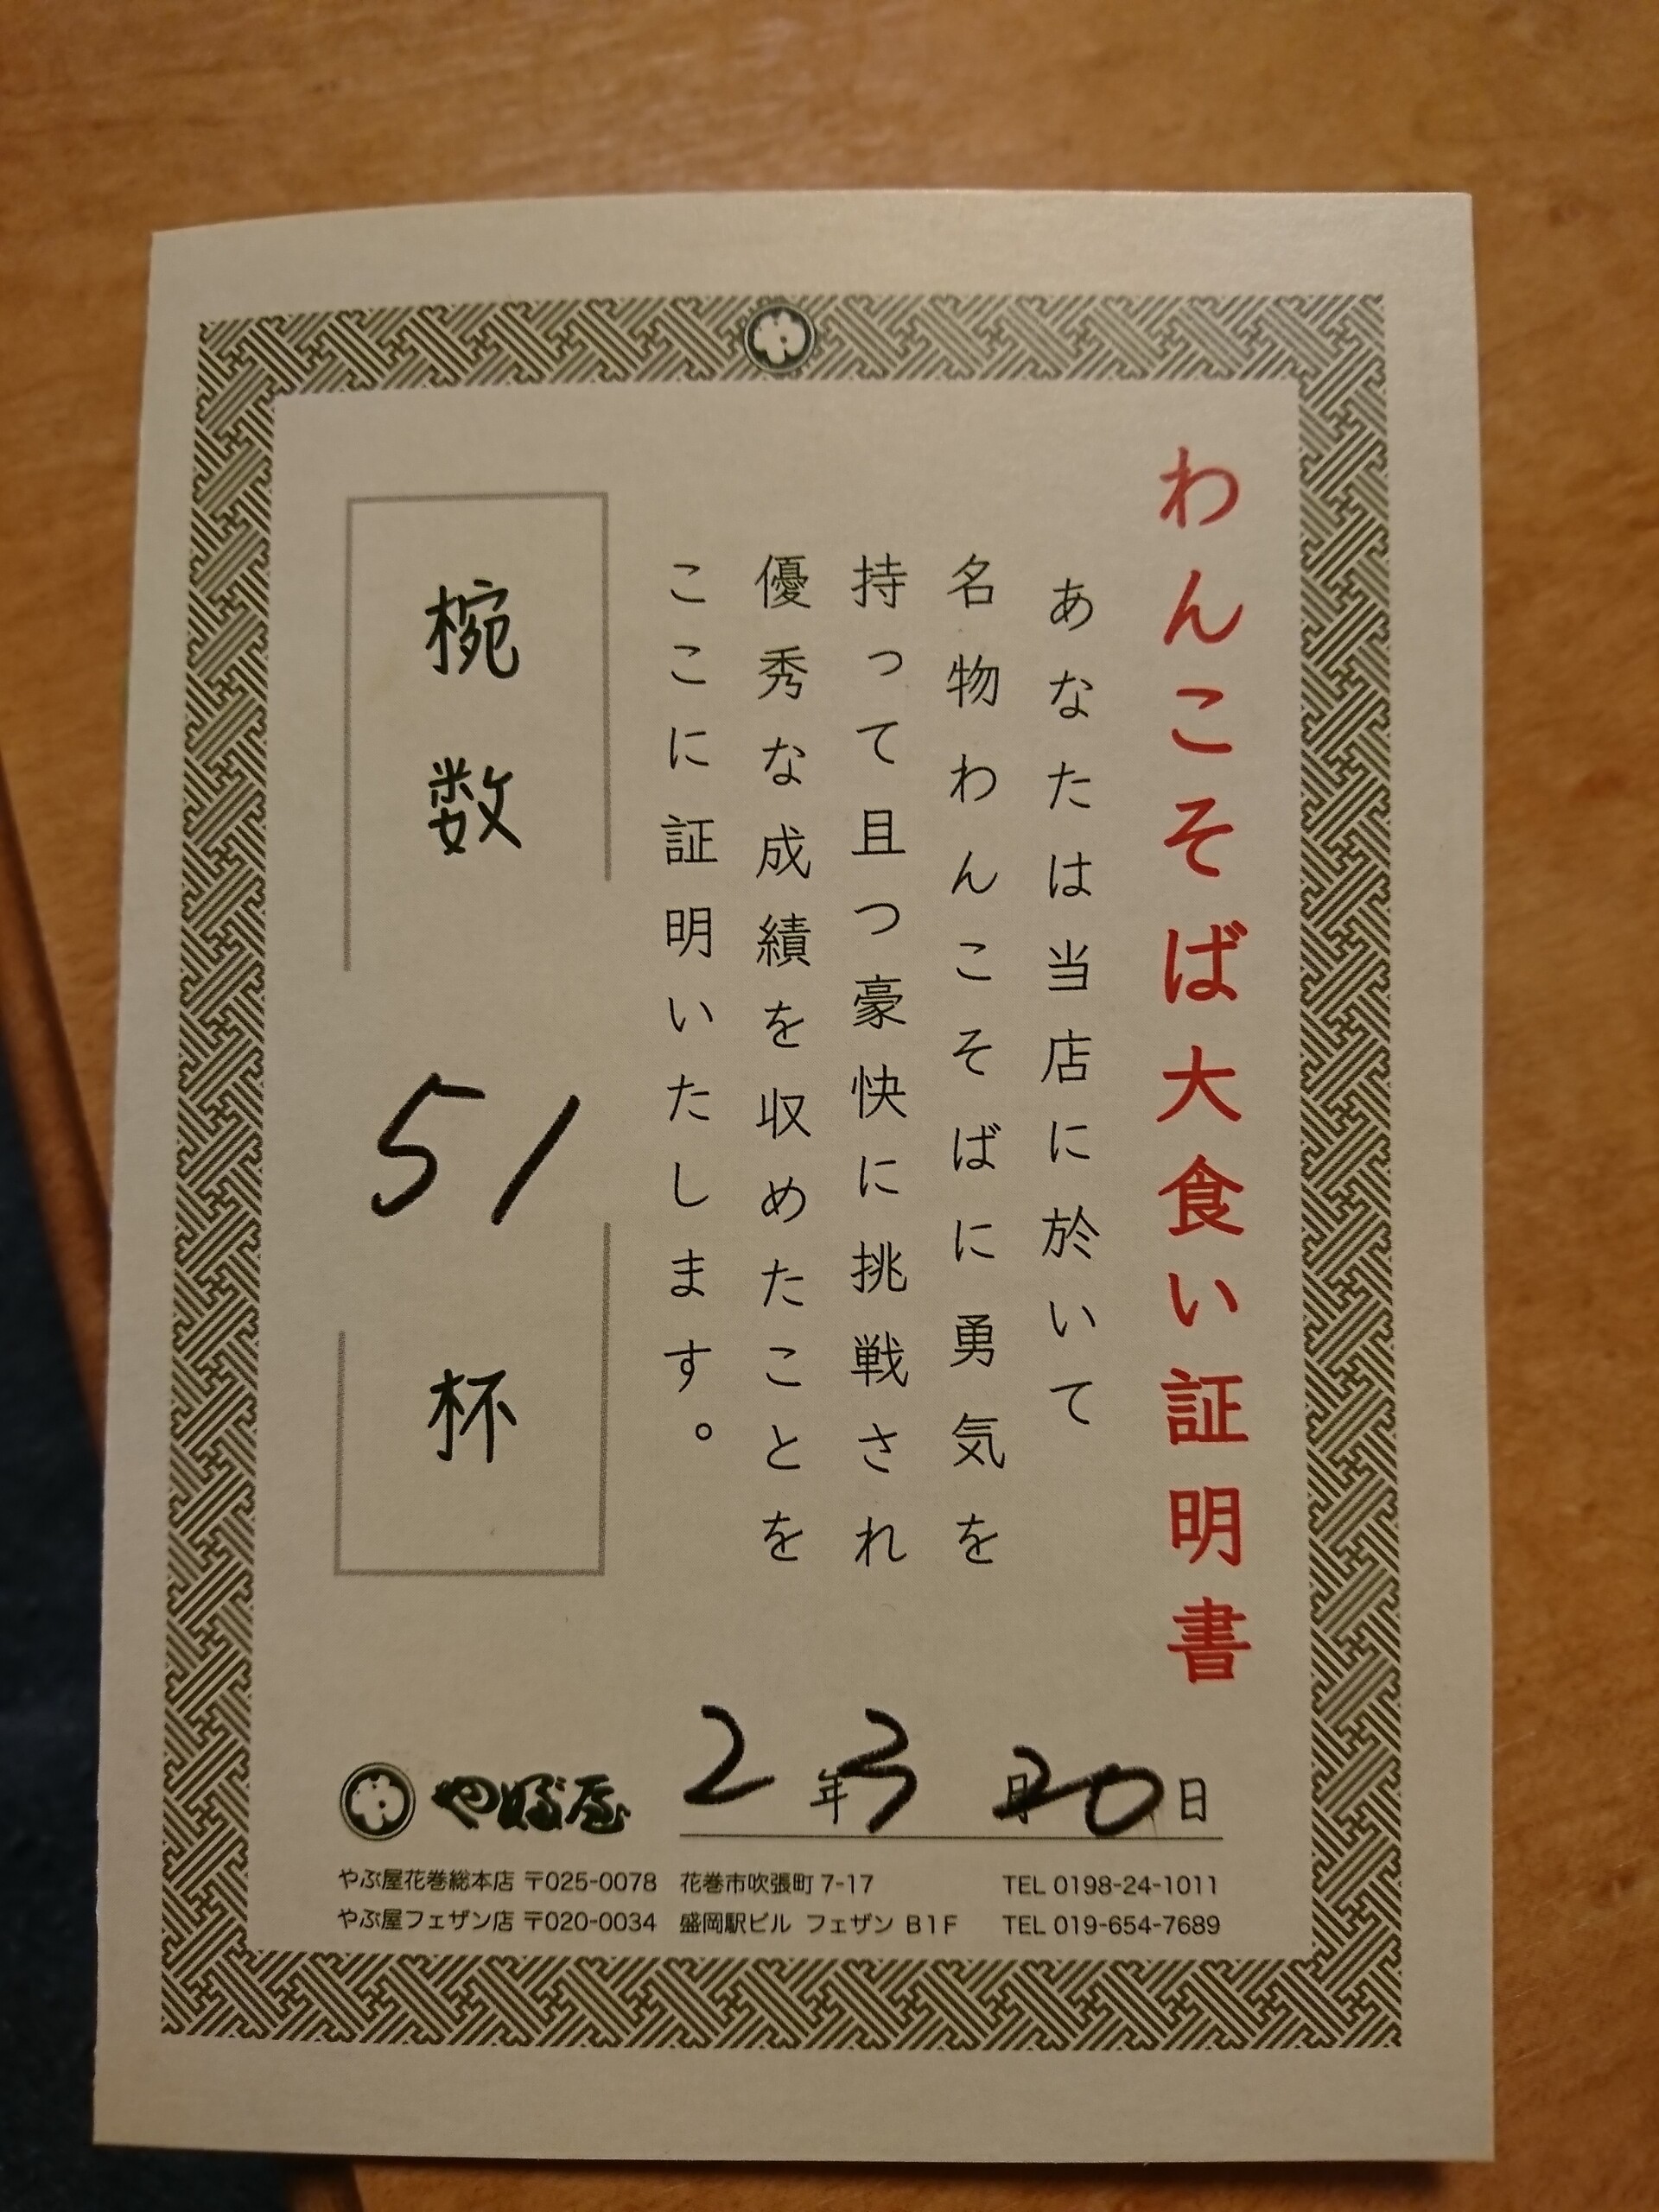 わんこそば大食い証明書
あなたは当店に於いて
名物わんこそばに勇気を
持って且つ豪快に挑戦され
優秀な成績を収めたことを
ここに証明いたします。
椀数 51 杯
2年3月20日
やぶ屋
やぶ屋花巻総本店 〒025-0078 花巻市吹張町7-17 TEL 0198-24-1011
やぶ屋フェザン店 〒020-0034 盛岡駅ビル フェザン B1F TEL 019-654-7689